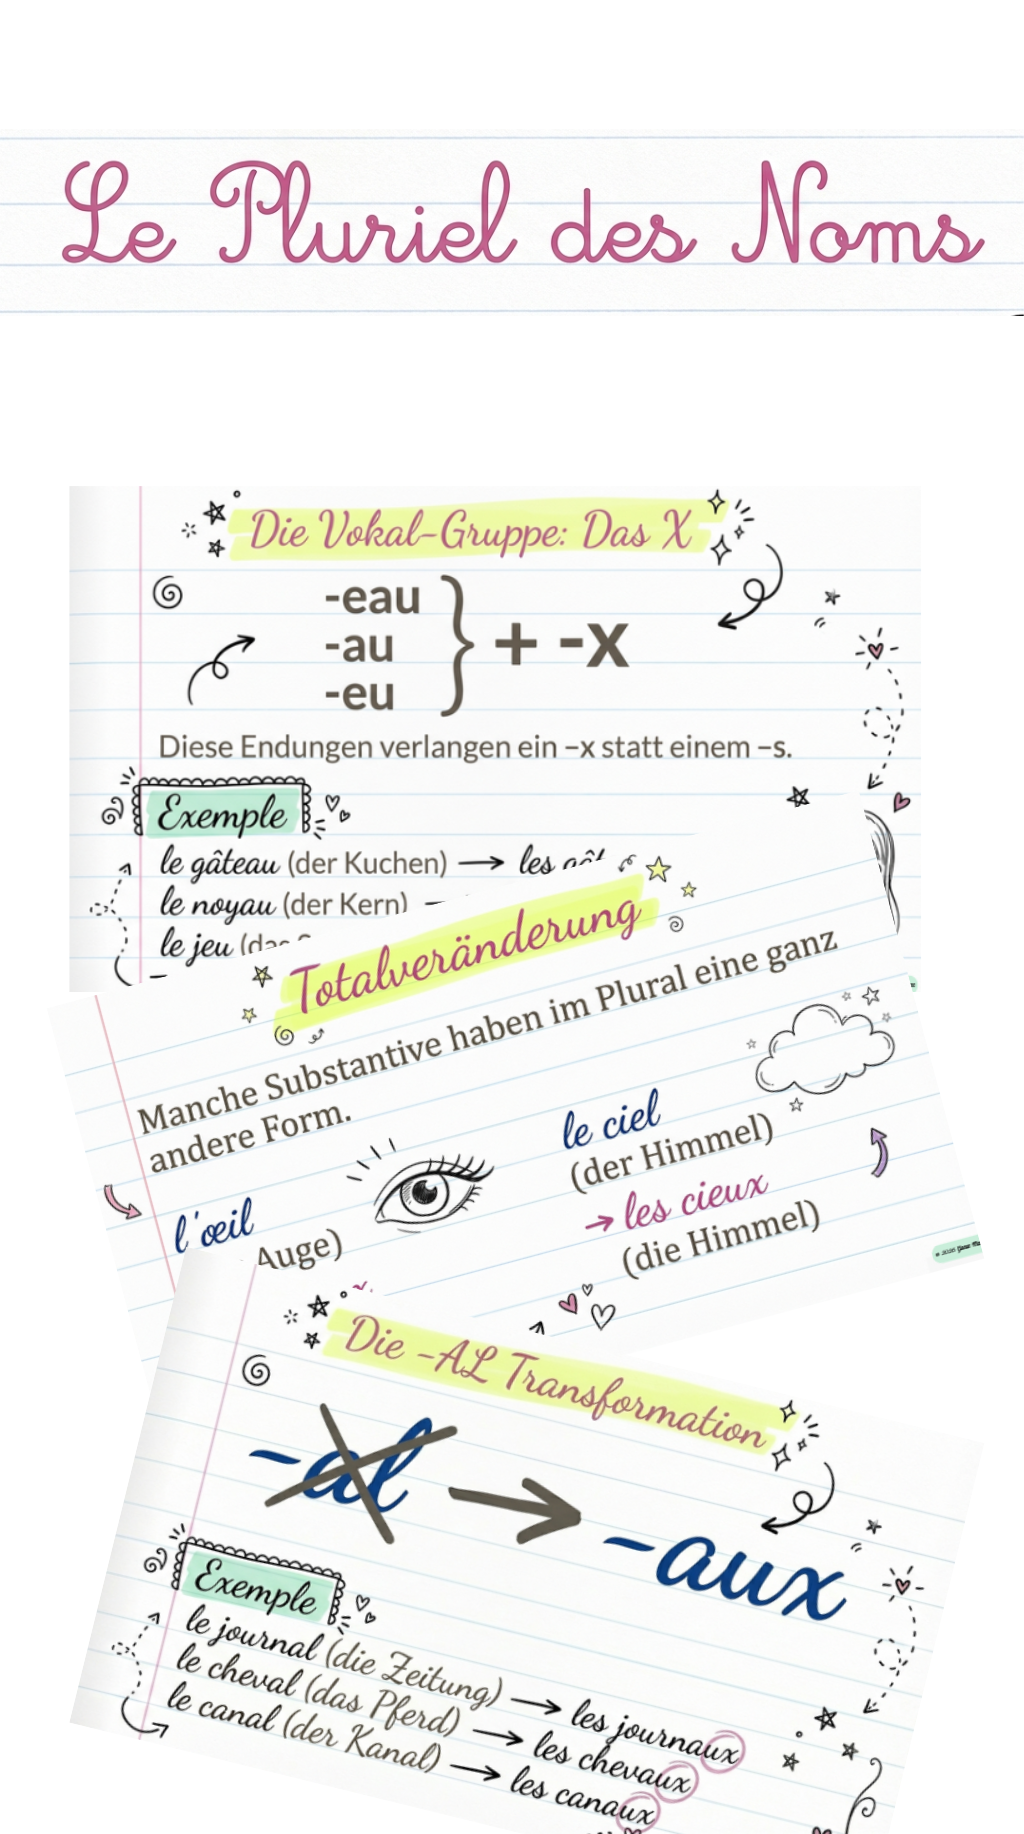 Le Pluriel des Noms
Die Vokal-Gruppe: Das X
-eau
-au
-eu
+ -x
Diese Endungen verlangen ein –x statt einem –s.
Exemple
le gâteau (der Kuchen) → les
le noyau (der Kern)
le jeu
Totalveränderung
Manche Substantive haben im Plural eine ganz
andere Form.
l'œil
Auge)
le ciel
(der Himmel)
→ les cieux
(die Himmel)
Die -AL Transformation
-al → -aux
Exemple
le journal (die Zeitung) → les journaux
le cheval (das Pferd) → les chevaux
le canal (der Kanal) → les canaux